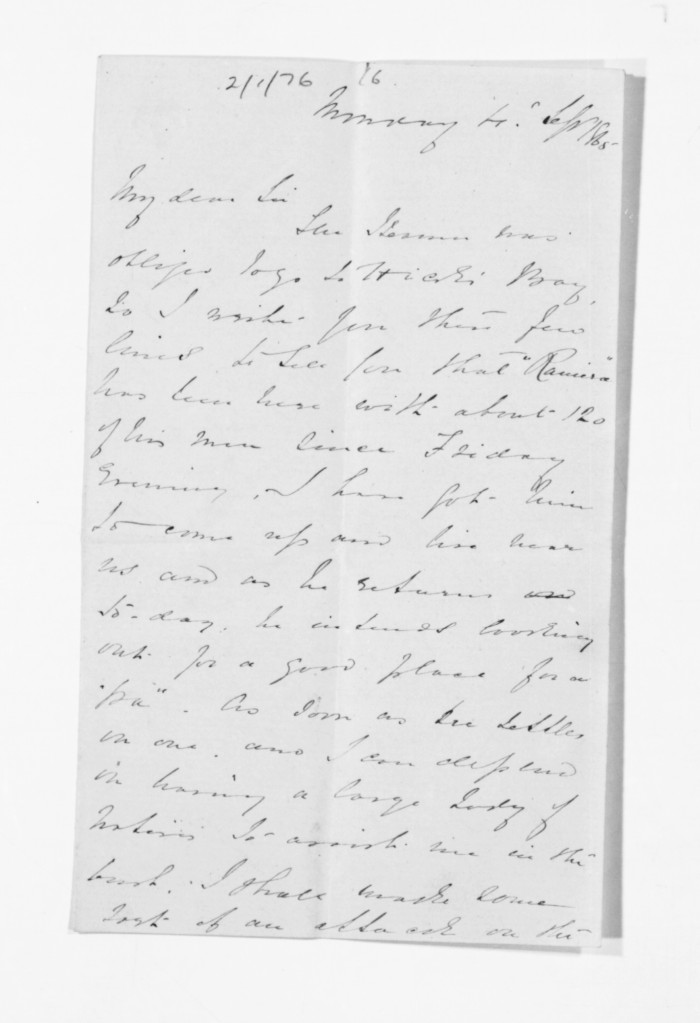 2/1/76 16
Monday 4th Sept 1865
My dear Sir
The Steamer was
obliged to go to Hicks Bay,
so I write you these few
lines to tell you that "Raniera"
has been here with about 120
of his men since Friday
Evening. I have got him
to come up and live near
us and as he returns and
to-day, he intends looking
out for a good place for a
"pa". As soon as he settles
on one, and I can depend
in having a large body of
Natives to assist me in the
bush, I shall make some
sort of an attack on the